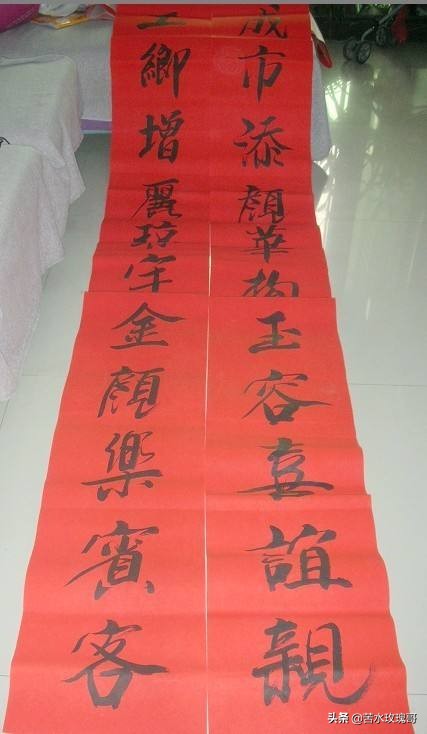 成市添顏華构玉容喜誼親
鄉增麗琼宇金顏樂賓客
头条 @苦水玫瑰哥